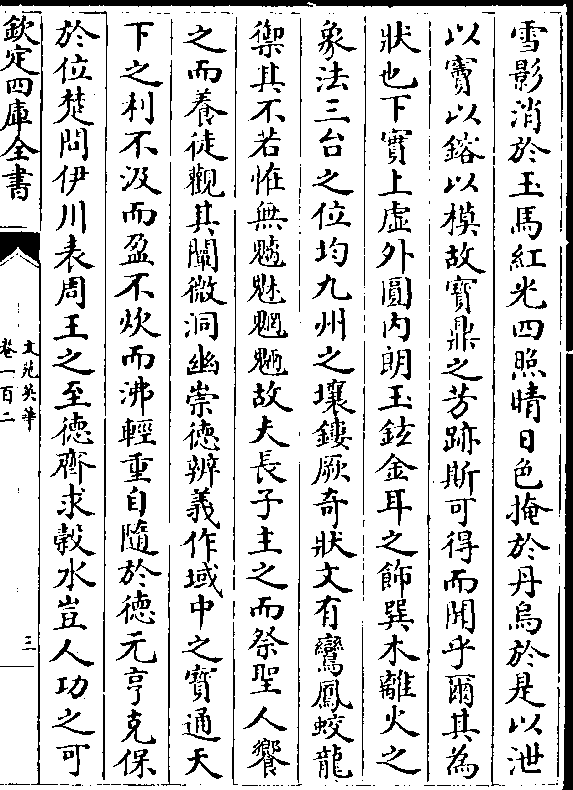 雪影消於玉馬紅光四照晴日色掩於丹烏於是以泄
以實以鎔以模故寶鼎之芳跡斯可得而聞乎爾其為
狀也下實上虛外圓内朗玉鉉金耳之飾巽木離火之
象法三台之位均九州之壤鏤厥奇狀文有鸞鳳蛟龍
禦其不若惟無魑魅魍魎故夫長子主之而祭聖人饗
之而養徒觀其闡微洞幽崇德辨義作域中之寳通天
下之利不汲而盈不炊而沸輕重自隨於德元亨克保
於位楚問伊川表周王之至德齊求穀水豈人功之可
欽定四庫全書
文苑英華
卷一百二
三